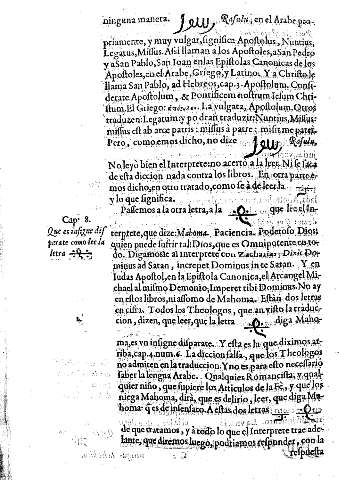 ninguna manera. Rasulu, en el Arabe pro-
priamente, y muy vulgar, significa Apostolus, Nuntius,
Legatus, Missus. Assi llaman a los Apostoles, a San Pedro
y a San Pablo, San Ioan en las Epistolas Canonicas de los
Apostoles, en el Arabe, Griego, y Latino. Y a Christo le
llama San Pablo, ad Hebreos, cap. 3. Apostolum. Consi-
derate Apostolum, & Pontificem nostrum Iesum Chri-
stum. El Griego: La vulgata, Apostolum. Otros
traduzen: Legatum y podran traduzir: Nuntius, Missus:
missus est ab arce patris: missus à patre: misit me pater.
Pero, como emos dicho, no dize Rasulu,
No leyò bien el Interprete: no acertò a la leer. Ni se saca
de esta diccion nada contra los libros. En otra parte e-
mos dicho, en otro tratado, como se à de leer la
y lo que significa.
Passemos a la otra letra, a la que lee el In-
Cap. 8.
Que es insigne dis
parate como lee la
letra
terprete, que dize: Mahoma. Paciencia. Poderoso Dios!
quien puede sufrir tal! Dios, que es Omnipotente en to-
do. Digamosle al interprete con Zacharias: Dixit Do-
minus ad Satan, increpet Dominus in te Satan. Y en
Iudas Apostol, en la Epistola Canonica, el Arcangel Mi-
chael al mismo Demonio, Imperet tibi Dominus. No ay
en estos libros, ni assomo de Mahoma. Estàn dos letras
en cifra. Todos los Theologos, que an visto la traduc-
cion, dizen, que leer, que la letra diga Maho-
ma, es vn insigne disparate. Y esta es lu que diximos ar-
riba, cap. 4. num. 6. La diccion falsa, que los Theologos
no admiten en la traduccion. Y no es para esto necessario
saber la lengua Arabe. Qualquier Romancista, y qual-
quier niño, que supiere los Articulos de la Fè, y que los
niega Mahoma, dirà, que es delirio, leer, que diga Ma-
homa: q̃ es de insensato. A estas dos letras
de que tratamos, y à todo lo que el Interprete trae ade-
lante, que diremos luego, podriamos responder, con la
respuesta